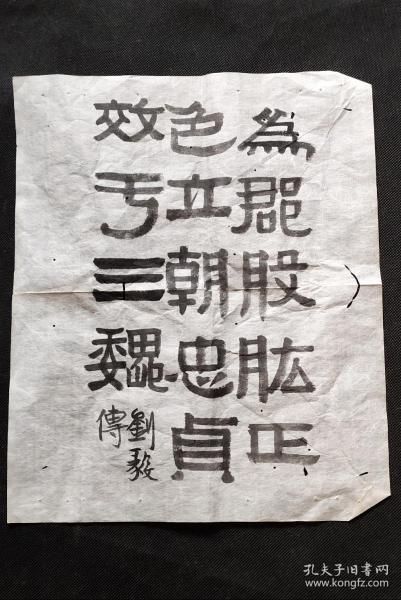 為郡股肱正
色立朝忠貞
效于三魏
劉毅
傳
孔夫子旧书网
www.kongfz.com